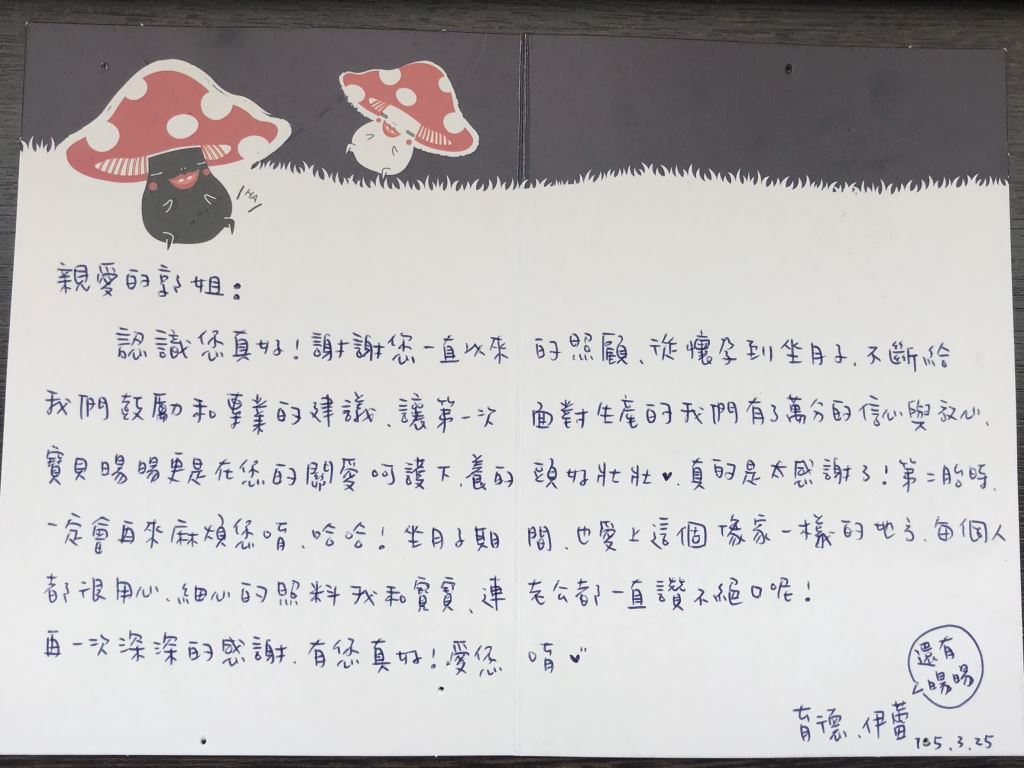 HA
親愛的郭姐：
認識您真好！謝謝您一直以來的照顧、從懷孕到坐月子、不斷給
我們鼓勵和專業的建議、讓第一次面對生產的我們有了萬分的信心與放心、
寶貝暘暘更是在您的關愛呵護下、養的頭好壯壯♥、真的是太感謝了！第二胎時、
一定會再來麻煩您唷、哈哈！坐月子期間、也愛上這個像家一樣的地方、每個人
都很用心、細心的照料我和寶寶、連老公都一直讚不絕口呢！
再一次深深的感謝、有您真好！愛您唷♥
還有
暘暘
育德、伊蕾
105.3.25